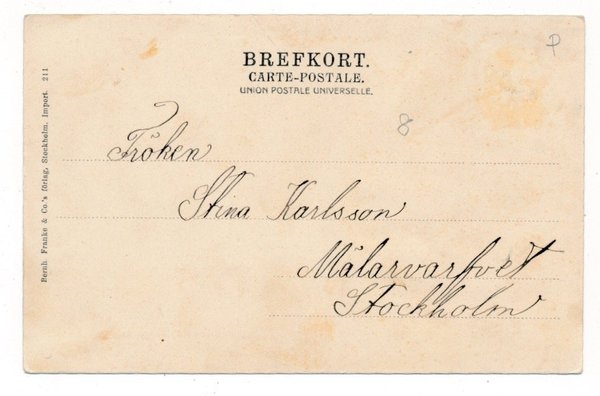 BREFKORT.
CARTE-POSTALE.
UNION POSTALE UNIVERSELLE.
P
8
Fröken
Stina Karlsson
Mälarvarfvet
Stockholm
Bernh. Franke & Co.'s förlag, Stockholm. Import. 211